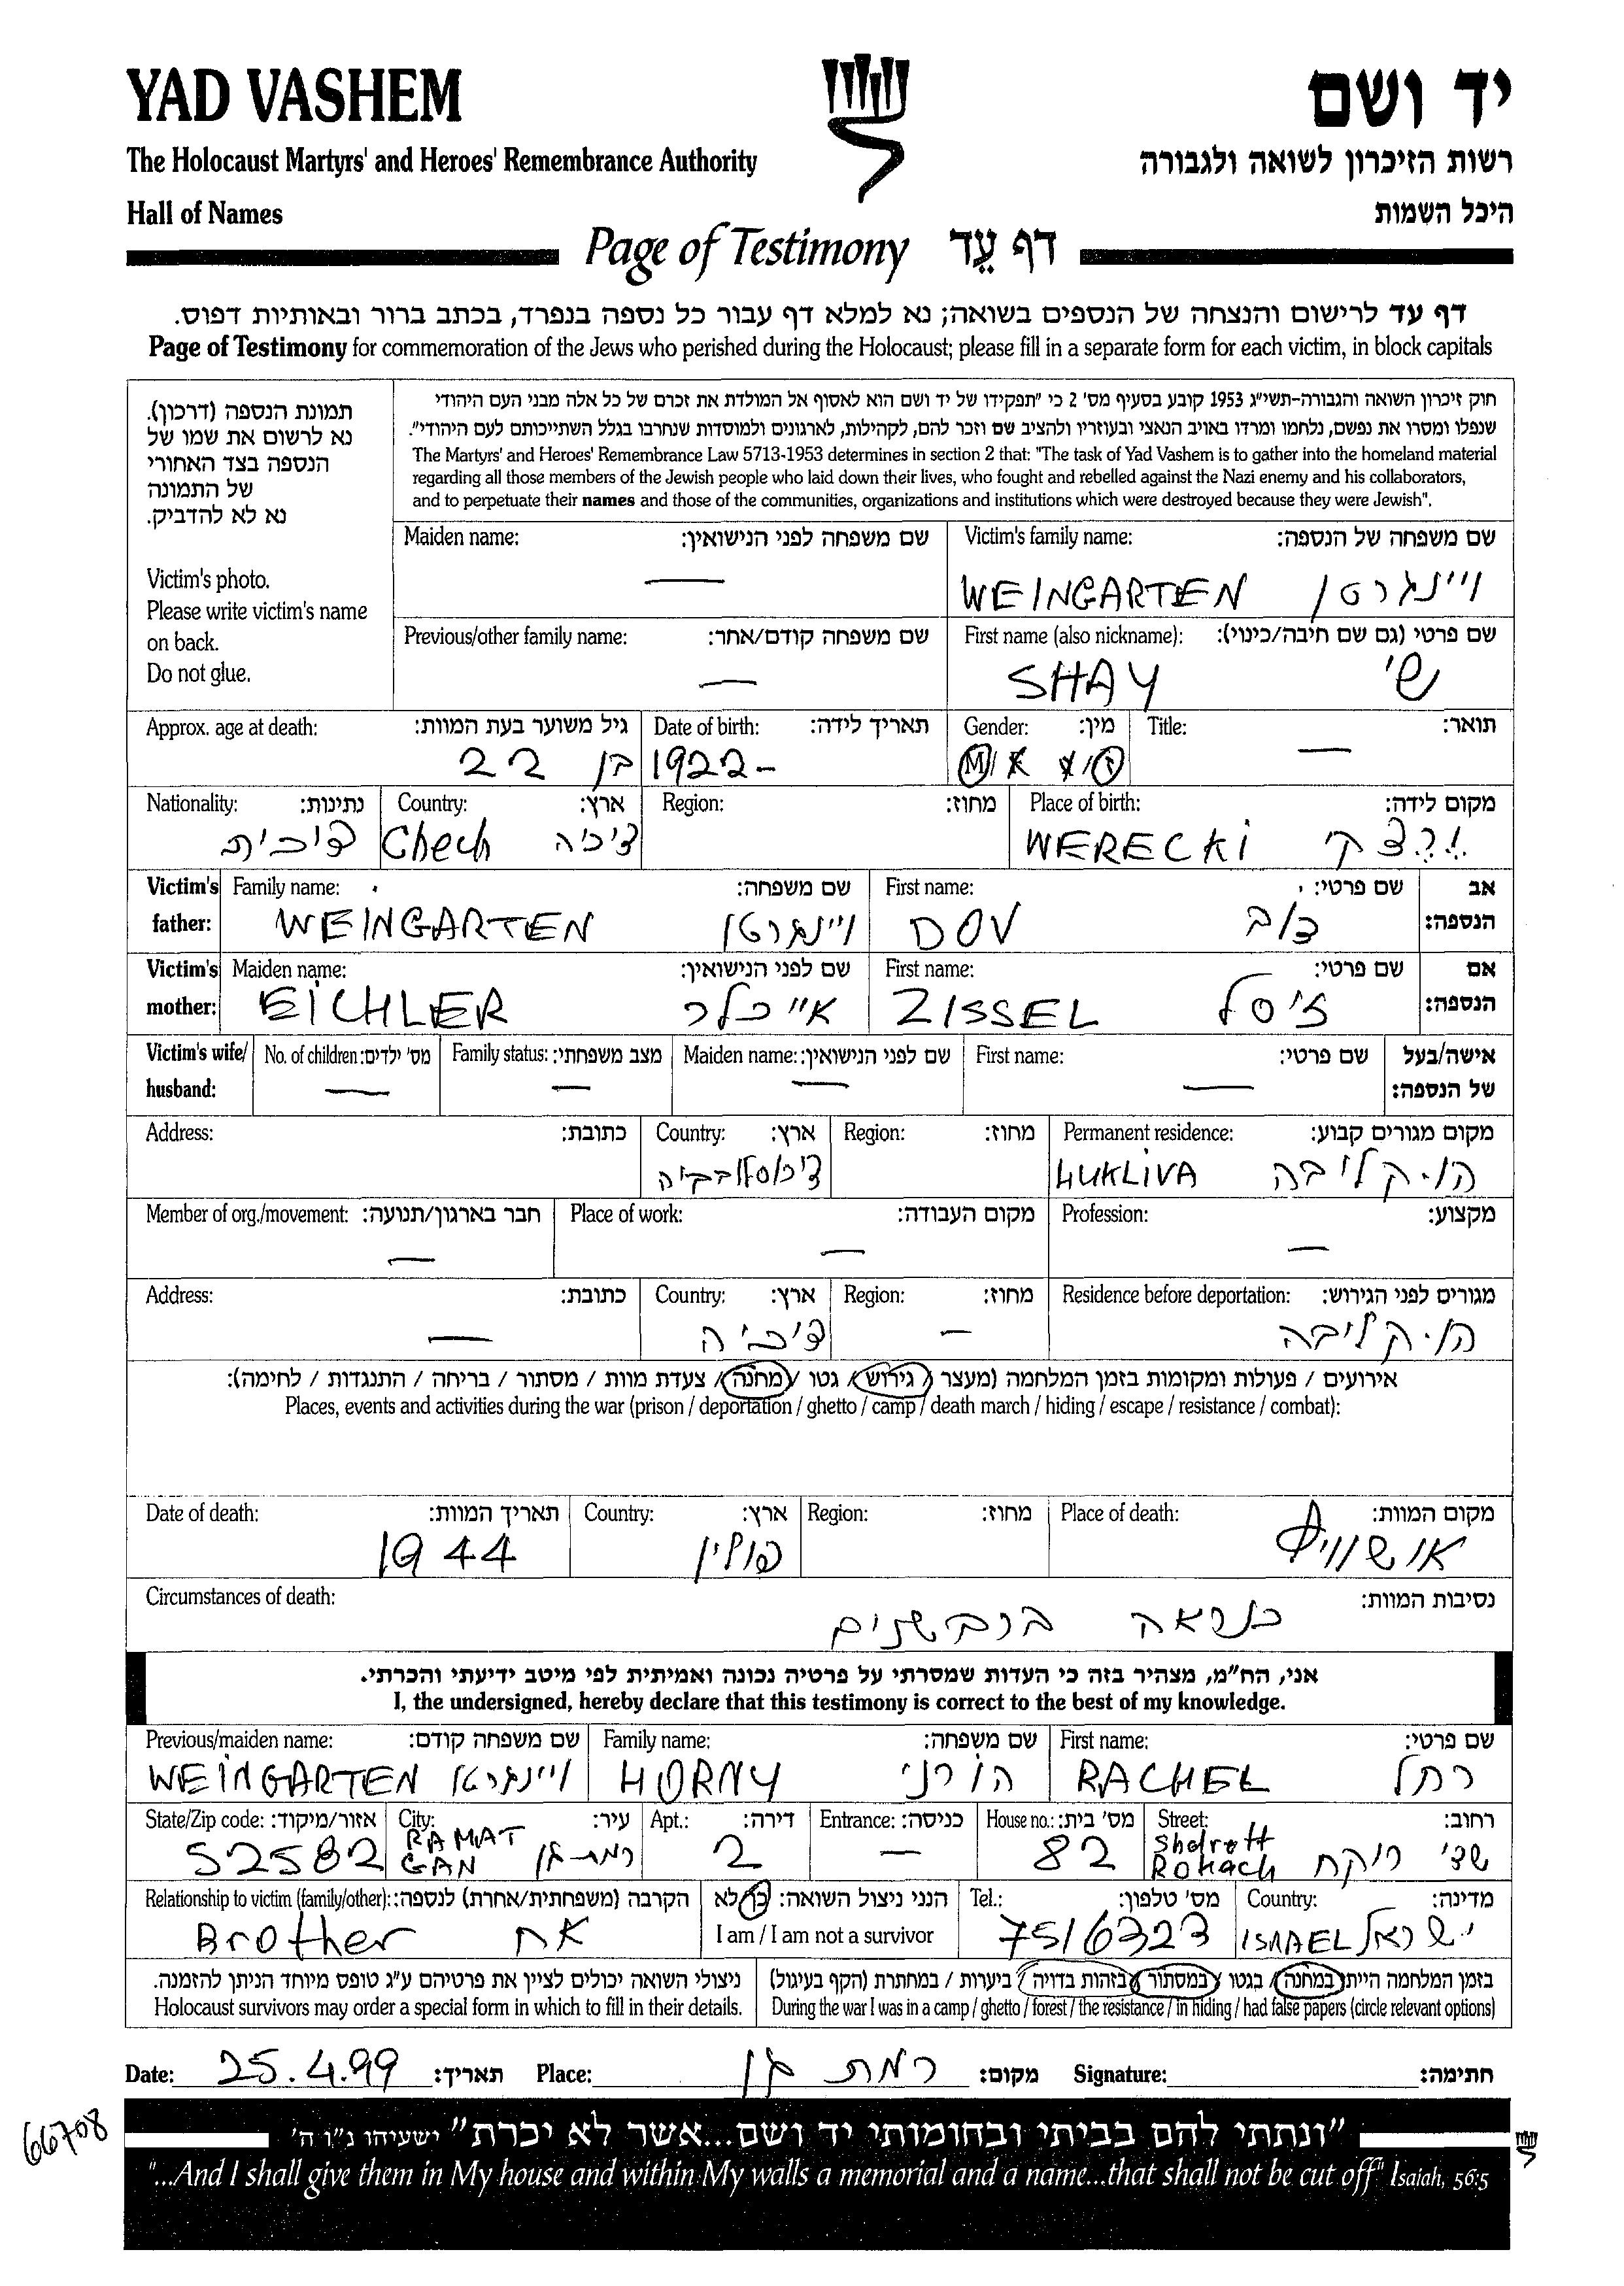 YAD VASHEM
יד ושם
The Holocaust Martyrs' and Heroes' Remembrance Authority
רשות הזיכרון לשואה ולגבורה
Hall of Names
היכל השמות
Page of Testimony דף עֵד
דף עד לרישום והנצחה של הנספים בשואה; נא למלא דף עבור כל נספה בנפרד, בכתב ברור ובאותיות דפוס.
Page of Testimony for commemoration of the Jews who perished during the Holocaust; please fill in a separate form for each victim, in block capitals
תמונת הנספה (דרכון).
נא לרשום את שמו של
הנספה בצד האחורי
של התמונה
נא לא להדביק.
Victim's photo.
Please write victim's name
on back.
Do not glue.
חוק זיכרון השואה והגבורה-תשי"ג 1953 קובע בסעיף מס' 2 כי "תפקידו של יד ושם הוא לאסוף אל המולדת את זכרם של כל אלה מבני העם היהודי
שנפלו ומסרו את נפשם, נלחמו ומרדו באויב הנאצי ובעוזריו ולהציב שם וזכר להם, לקהילות, לארגונים ולמוסדות שנחרבו בגלל השתייכותם לעם היהודי".
The Martyrs' and Heroes' Remembrance Law 5713-1953 determines in section 2 that: "The task of Yad Vashem is to gather into the homeland material
regarding all those members of the Jewish people who laid down their lives, who fought and rebelled against the Nazi enemy and his collaborators,
and to perpetuate their names and those of the communities, organizations and institutions which were destroyed because they were Jewish".
Maiden name: שם משפחה לפני הנישואין: Victim's family name: שם משפחה של הנספה:
— WEINGARTEN ויינגרטן
Previous/other family name: שם משפחה קודם/אחר: First name (also nickname): שם פרטי (גם שם חיבה/כינוי):
— SHAY שי
Approx. age at death: גיל משוער בעת המוות: Date of birth: תאריך לידה: Gender: מין: Title: תואר:
בן 22 1922- M/F נ/ז —
Nationality: נתינות: Country: ארץ: Region: מחוז: Place of birth: מקום לידה:
צ'כית Chech צ'כיה WERECKI
Victim's father: Family name: שם משפחה: First name: שם פרטי: אב הנספה:
WEINGARTEN ויינגרטן DOV דוב
Victim's mother: Maiden name: שם לפני הנישואין: First name: שם פרטי: אם הנספה:
EICHLER אייכלר ZISSEL זיסל
Victim's wife/ husband: No. of children: מס' ילדים: Family status: מצב משפחתי: Maiden name: שם לפני הנישואין: First name: שם פרטי: אישה/בעל של הנספה:
— — — —
Address: כתובת: Country: ארץ: Region: מחוז: Permanent residence: מקום מגורים קבוע:
צ'כוסלובקיה HUKLIVA הוקליבה
Member of org./movement: חבר בארגון/תנועה: Place of work: מקום העבודה: Profession: מקצוע:
— — —
Address: כתובת: Country: ארץ: Region: מחוז: Residence before deportation: מגורים לפני הגירוש:
— צ'כיה — הוקליבה
אירועים / פעולות ומקומות בזמן המלחמה (מעצר / גירוש / גטו / מחנה / צעדת מוות / מסתור / בריחה / התנגדות / לחימה):
Places, events and activities during the war (prison / deportation / ghetto / camp / death march / hiding / escape / resistance / combat):
Date of death: תאריך המוות: Country: ארץ: Region: מחוז: Place of death: מקום המוות:
1944 פולין אושוויץ
Circumstances of death: נסיבות המוות:
כנראה בכבשנים
אני, הח"מ, מצהיר בזה כי העדות שמסרתי על פרטיה נכונה ואמיתית לפי מיטב ידיעתי והכרתי.
I, the undersigned, hereby declare that this testimony is correct to the best of my knowledge.
Previous/maiden name: שם משפחה קודם: Family name: שם משפחה: First name: שם פרטי:
WEINGARTEN ויינגרטן HORNY הורני RACHEL רחל
State/Zip code: אזור/מיקוד: City: עיר: Apt.: דירה: Entrance: כניסה: House no.: מס' בית: Street: רחוב:
52582 RAMAT GAN רמת-גן 2 — 82 Shdrott Rokach שד' רוקח
Relationship to victim (family/other): הקרבה (משפחתית/אחרת) לנספה: הנני ניצול השואה: כן/לא Tel.: מס' טלפון: Country: מדינה:
Brother אח I am / I am not a survivor 7516323 ISRAEL ישראל
ניצולי השואה יכולים לציין את פרטיהם ע"ג טופס מיוחד הניתן להזמנה. בזמן המלחמה הייתי במחנה / בגטו / במסתור / בזהות בדויה / ביערות / במחתרת (הקף בעיגול)
Holocaust survivors may order a special form in which to fill in their details. During the war I was in a camp / ghetto / forest / the resistance / in hiding / had false papers (circle relevant options)
Date: 25.4.99 תאריך: Place: רמת גן מקום: Signature: חתימה:
66708
"ונתתי להם בביתי ובחומותי יד ושם...אשר לא יכרת" ישעיהו נ"ו ה'
"...And I shall give them in My house and within My walls a memorial and a name...that shall not be cut off" Isaiah, 56:5